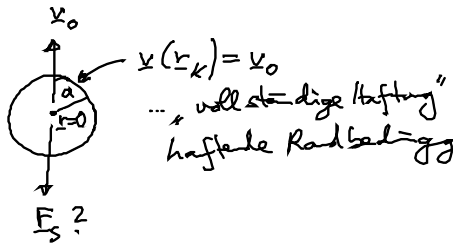 v₀
a
r=0
v(r_K) = v₀
... „vollständige Haftung"
haftende Randbedingg
F_s ?